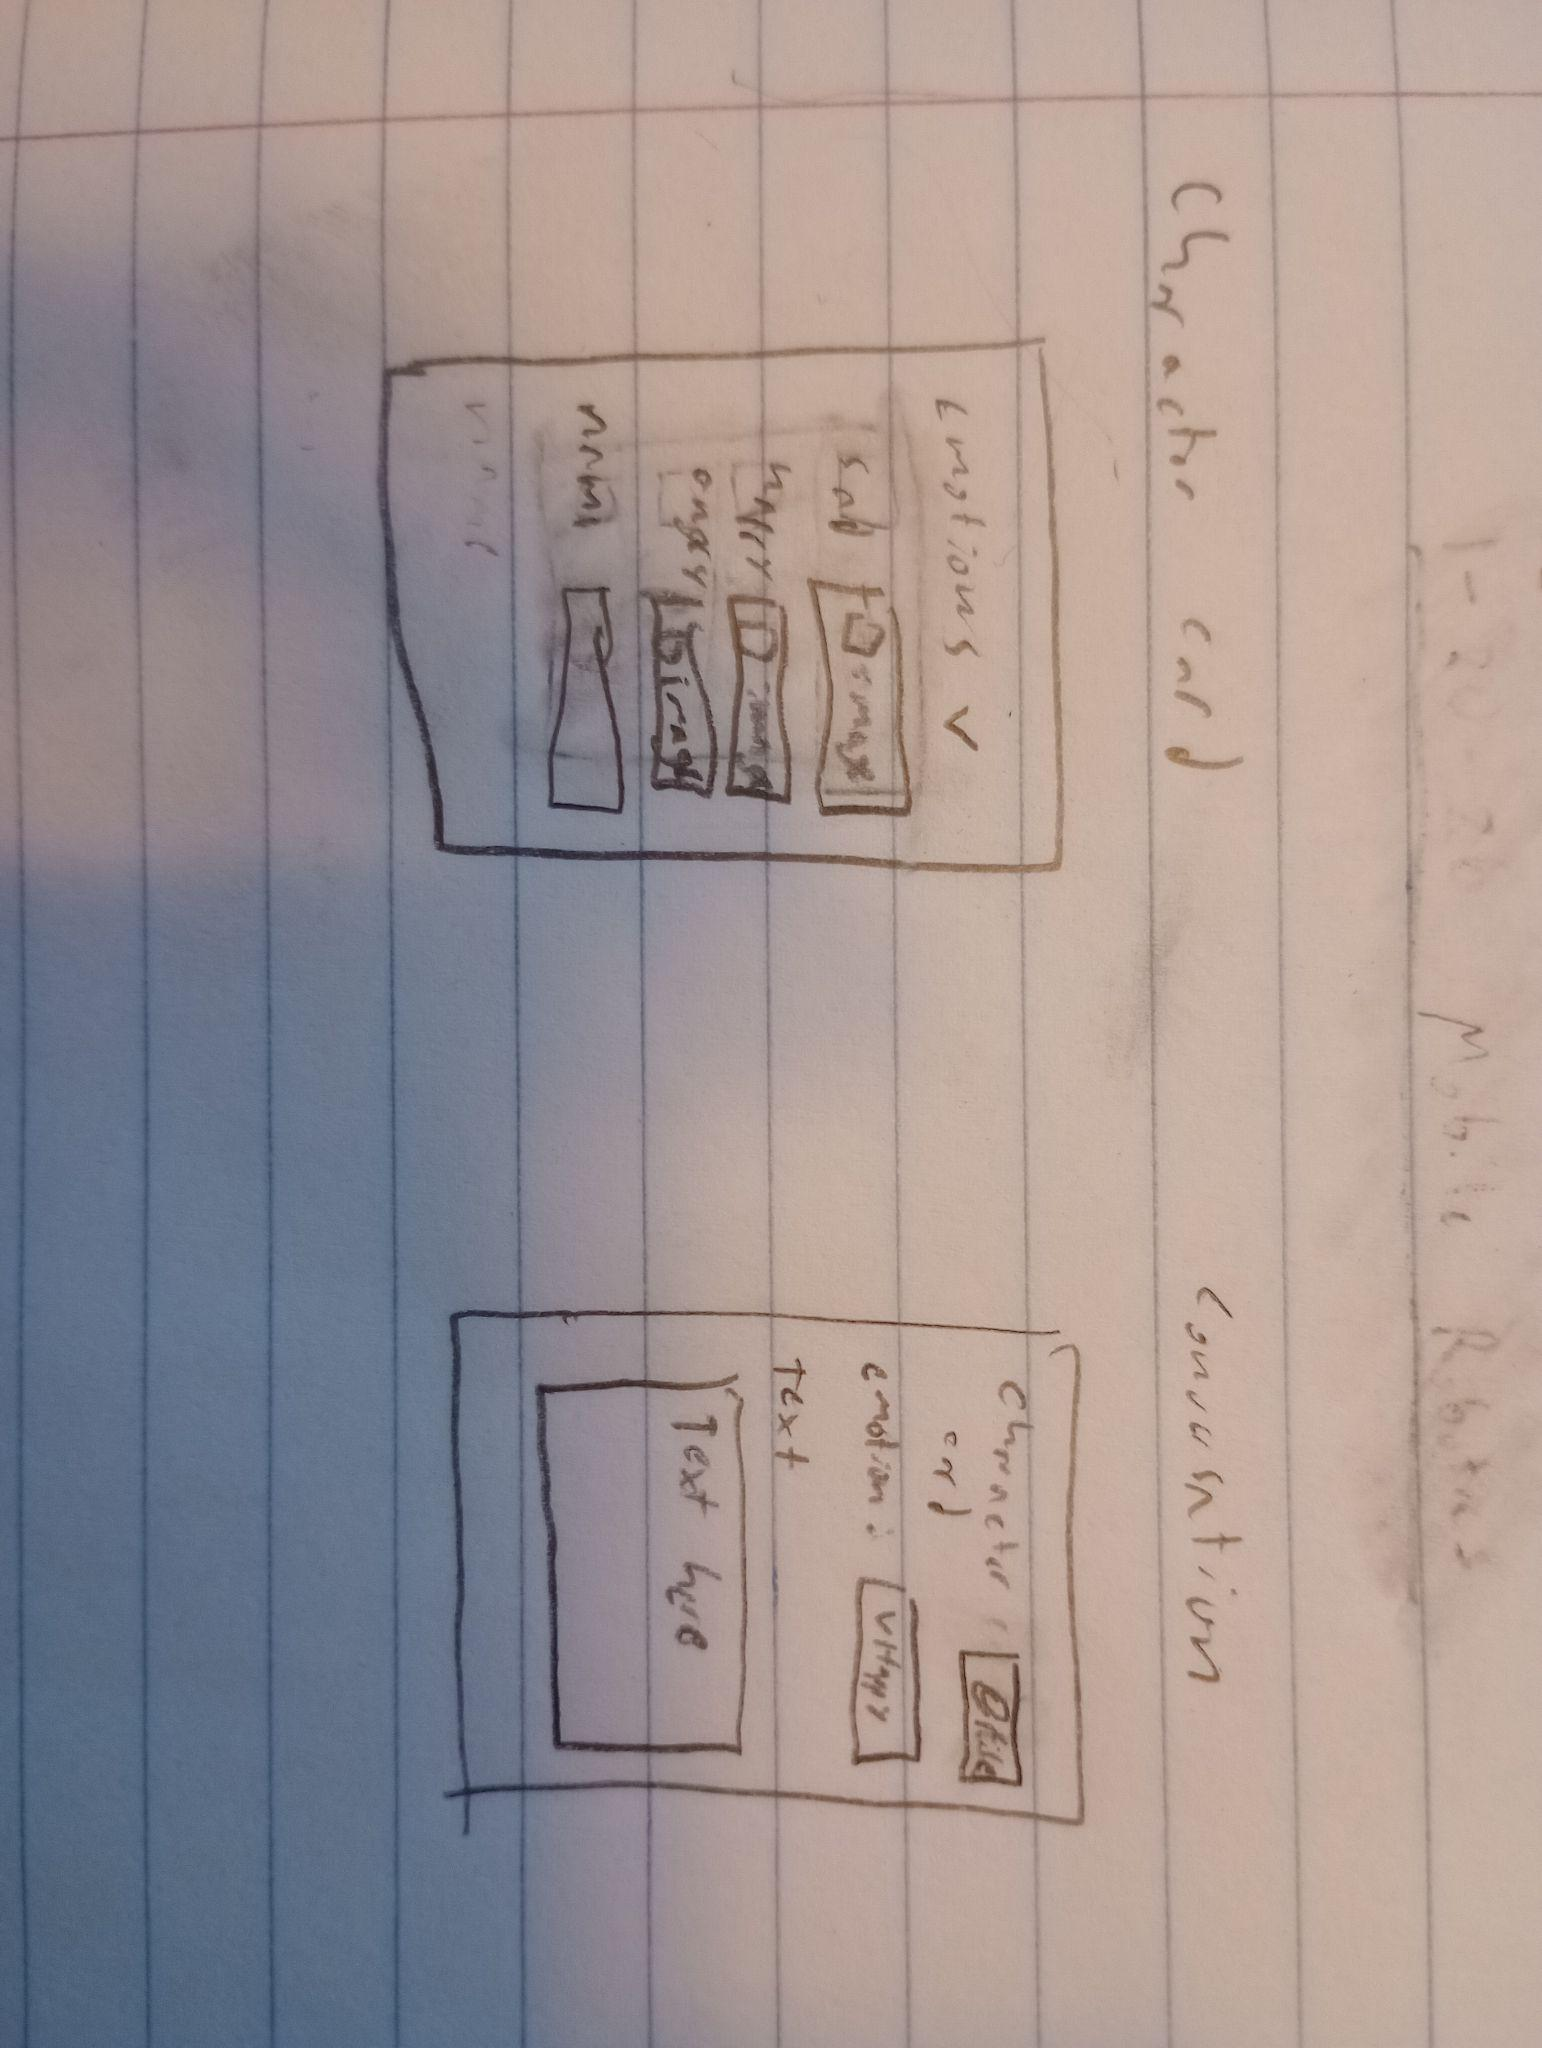 1-20-26 Mobile Robotics
Charactor card
Emotions v
sad image
happy image
angry image
Convusation
Charactor
card file
emotion: v Happy
Text
Text here